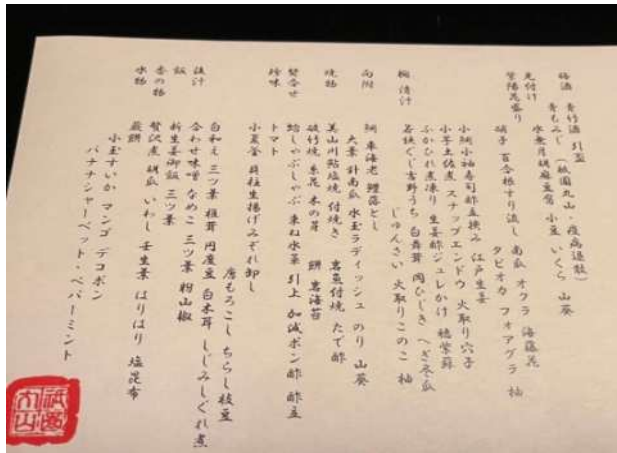 梅酒 青竹酒 引盃
青もみじ (祇園丸山・疫病退散)
先付け 水無月胡麻豆腐 小豆 いくら 山葵
紫陽花盛り
硝子 百合根すり流し 南瓜 オクラ 海藤花
タピオカ フォアグラ 柚
小鯛小袖寿司酢立挟み 江戸生姜
小芋土佐煮 スナップエンドウ 火取り穴子
ふかひれ煮凍り 生姜酢ジュレかけ 穂紫蘇
椀 清汁 若狭ぐじ吉野うち 白舞茸 岡ひじき へぎ冬瓜
じゅんさい 火取りこのこ 柚
向附 鯛 車海老 鱧落とし
大葉 針南瓜 水玉ラディッシュ のり 山葵
焼物 美山川鮎塩焼 付焼き 岩魚付焼 たで酢
破竹焼 糸花 木の芽 餅 岩海苔
鬵合せ 蛤しゃぶしゃぶ 束ね水菜 引上 加減ポン酢 酢立
トマト
珍味 小蕪釜 貝柱生揚げみぞれ卸し
唐もろこし ちらし枝豆
白和え 三ツ葉 椎茸 円度豆 白木耳 しじみしぐれ煮
汁 合わせ味噌 なめこ 三ツ葉 粉山椒
飯 新生姜御飯 三ツ葉
香の物 贅沢煮 胡瓜 いわし 壬生菜 はりはり 塩昆布
水物 蕨餅
小玉すいか マンゴ デコポン
バナナシャーベット・ペパーミント
祇園丸山